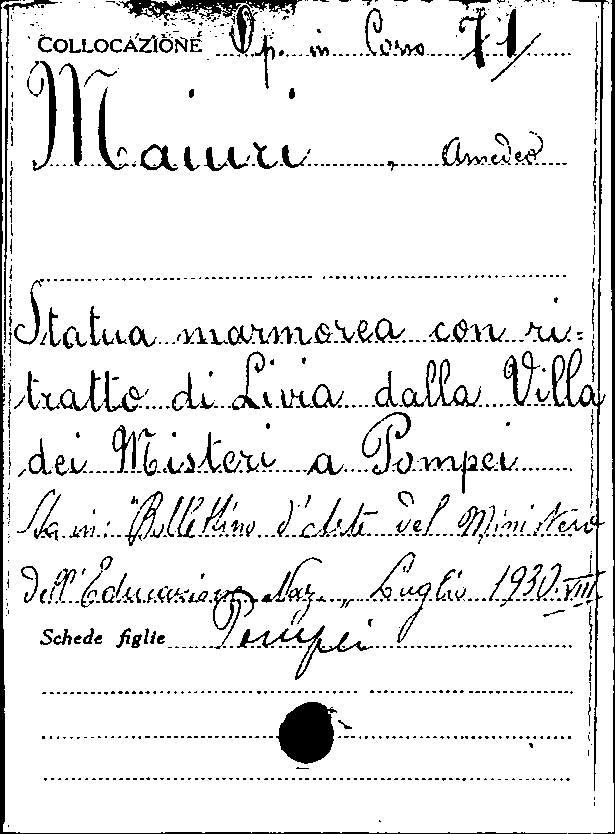 COLLOCAZIONE Op. in Corso 71
Maiuri, Amedeo
Statua marmorea con ri=
tratto di Livia dalla Villa
dei Misteri a Pompei
Sta in: "Bollettino d'Arte del Ministero
dell'Educazione Naz.„ Luglio 1930.VIII
Schede figlie Pompei